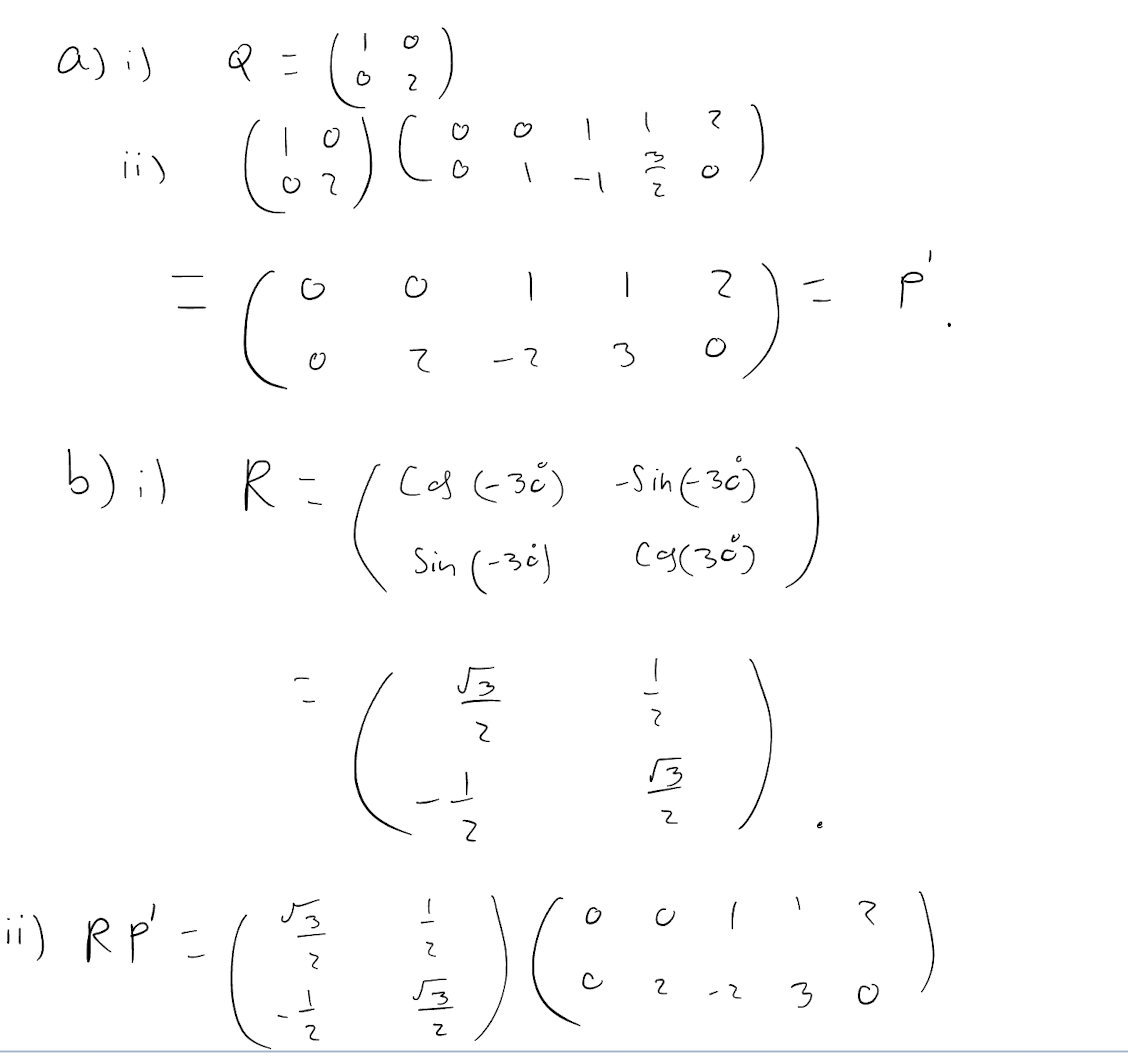 a) i) Q = ( 1 0 )
( 0 2 )
ii) ( 1 0 ) ( 0 0 1 1 2 )
( 0 2 ) ( 0 1 -1 3/2 0 )
= ( 0 0 1 1 2 ) = P'.
( 0 2 -2 3 0 )
b) i) R = ( Cos (-30°) -Sin(-30°) )
( Sin (-30°) Cos(30°) )
= ( √3/2 1/2 )
( -1/2 √3/2 ).
ii) R P' = ( √3/2 1/2 ) ( 0 0 1 1 2 )
( -1/2 √3/2 ) ( 0 2 -2 3 0 )